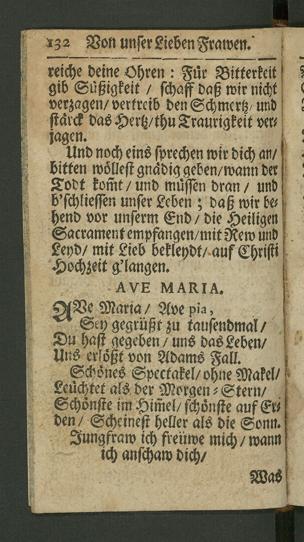 132 Von unser Lieben Frawen.
reiche deine Ohren : Für Bitterkeit
gib Süßigkeit / schaff daß wir nicht
verzagen/ vertreib den Schmertz/ und
stärck das Hertz/ thu Traurigkeit ver-
jagen.
Und noch eins sprechen wir dich an/
bitten wöllest gnädig geben/ wann der
Todt kom̃t / und müssen dran / und
b'schliessen unser Leben ; daß wir be-
hend vor unserm End / die Heiligen
Sacrament empfangen/ mit Rew und
Leyd/ mit Lieb bekleydt/ auf Christi
Hochzeit g'langen.
AVE MARIA.
AVe Maria/ Ave pia,
Sey gegrüßt zu tausendmal/
Du hast gegeben / uns das Leben/
Uns erlößt von Adams Fall.
Schönes Spectakel/ ohne Makel/
Leuchtet als der Morgen-Stern/
Schönste im Him̃el/ schönste auf Er-
den / Scheinest heller als die Sonn.
Jungfraw ich freüwe mich / wann
ich anschaw dich/
Was